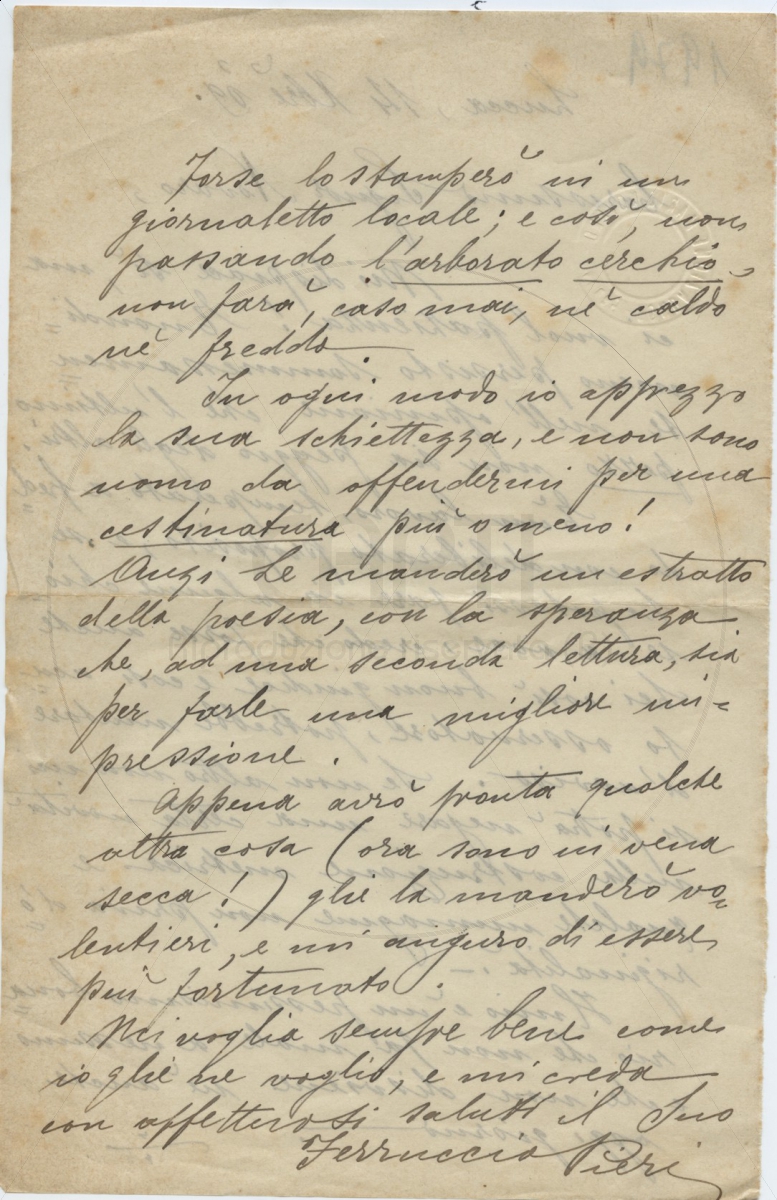 Forse lo stamperò in un
giornaletto locale; e così, non
passando l'arborato cerchio,
non farà, caso mai, nè caldo
nè freddo.
In ogni modo io apprezzo
la sua schiettezza, e non sono
uomo da offendermi per una
cestinatura più o meno!
Anzi Le manderò un estratto
della poesia, con la speranza
che, ad una seconda lettura, sia
per farle una migliore im=
pressione.
Appena avrò pronta qualche
altra cosa (ora sono in vena
secca!) glie la manderò vo=
lentieri, e mi auguro di essere
più fortunato.
Mi voglia sempre bene come
io glie ne voglio, e mi creda
con affettuosi saluti il Suo
Ferruccio Pieri